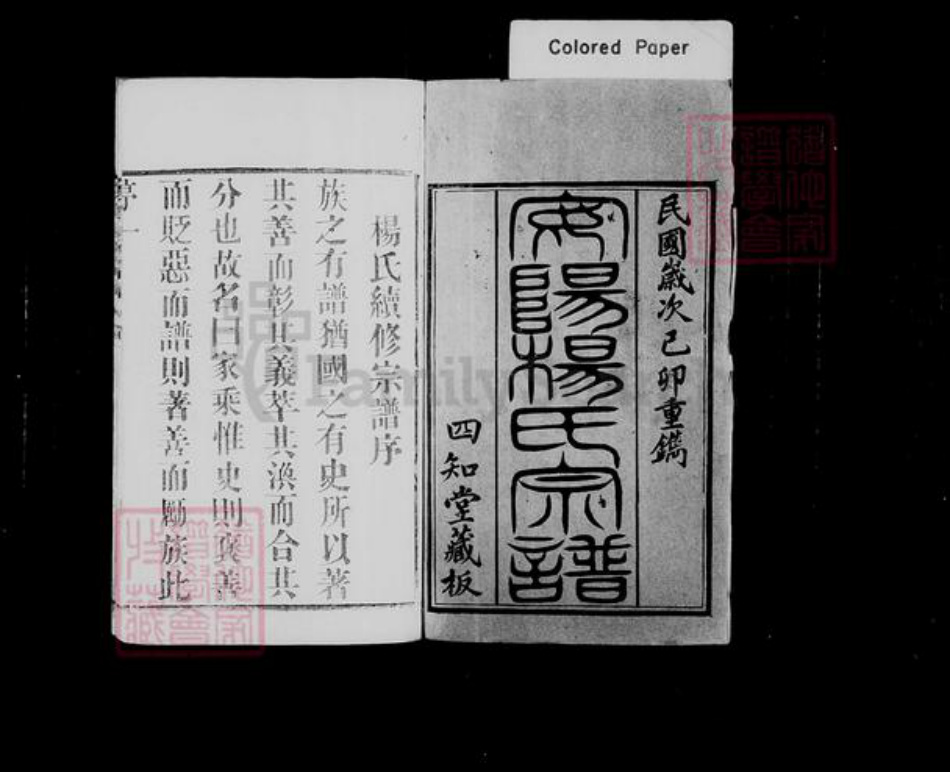 Colored Paper
民國歲次己卯重鐫
安陽楊氏宗譜
四知堂藏板
楊氏續修宗譜序
族之有譜猶國之有史所以著
其善而彰其義萃其渙而合其
分也故名曰家乘惟史則褒善
而貶惡而譜則著善而勵族此
Family